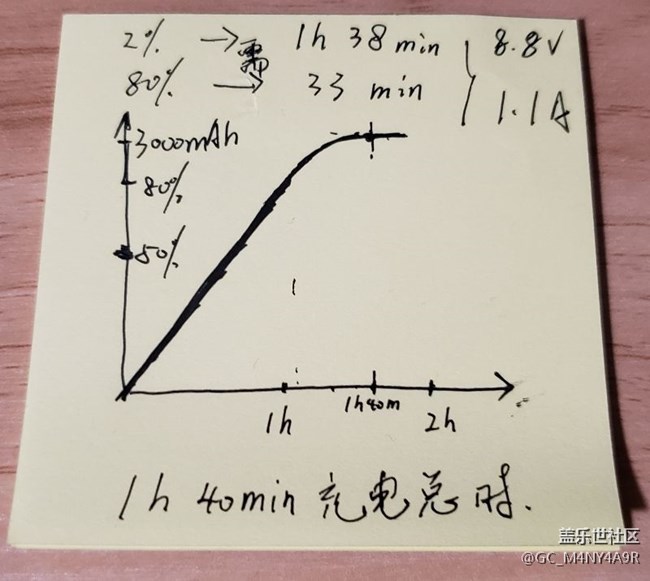 2% → 需 1h 38 min
80% → 33 min
8.8V
1.1A
3000mAh
80%
50%
1h
1h40m
2h
1h 40min 充电总时.
盖乐世社区
@GC_M4NY4A9R